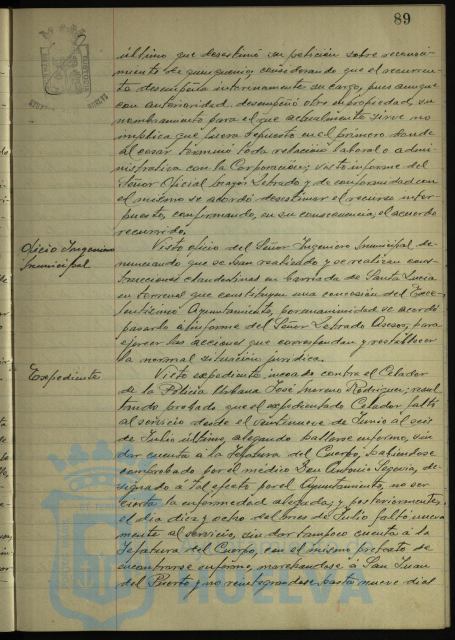 89
último que desestimó su petición sobre reconoci-
miento de quinquenio, considerando que el recurren-
te desempeña interinamente su cargo, pues aunque
con anterioridad desempeñó otro en propiedad, su
nombramiento para el que actualmente sirve no
implica que fuera repuesto en el primero donde
al cesar terminó toda relación laboral o admi-
nistrativa con la Corporación; visto informe del
Señor Oficial Mayor Letrado y de conformidad con
el mismo se acordó desestimar el recurso inter-
puesto, confirmando, en su consecuencia, el acuerdo
recurrido.
Oficio Ingeniero
Municipal
Visto oficio del Señor Ingeniero Municipal, de-
nunciando que se han realizado y se realizan cons-
trucciones clandestinas en barriada de Santa Lucía
en terrenos que constituyen una concesión del Exce-
lentísimo Ayuntamiento, por unanimidad se acordó
pasarlo a informe del Señor Letrado Asesor, para
ejercer las acciones que correspondan y restablecer
la normal situación jurídica.
Expediente
Visto expediente incoado contra el Celador
de la Policía Urbana José Moreno Rodríguez; resul-
tando probado que el expedientado Celador faltó
al servicio desde el veintinueve de Junio al seis
de Julio último, alegando hallarse enfermo, sin
dar cuenta a la Jefatura del Cuerpo, habiéndose
comprobado por el médico Don Antonio Segovia, de-
signado a tal efecto por el Ayuntamiento, no ser
cierta la enfermedad alegada; y posteriormente,
el día diez y ocho del mes de Julio faltó nueva-
mente al servicio, sin dar tampoco cuenta a la
Jefatura del Cuerpo, con el mismo pretexto de
encontrarse enfermo, marchándose a San Juan
del Puerto y no reintegrándose hasta nueve días
HUELVA